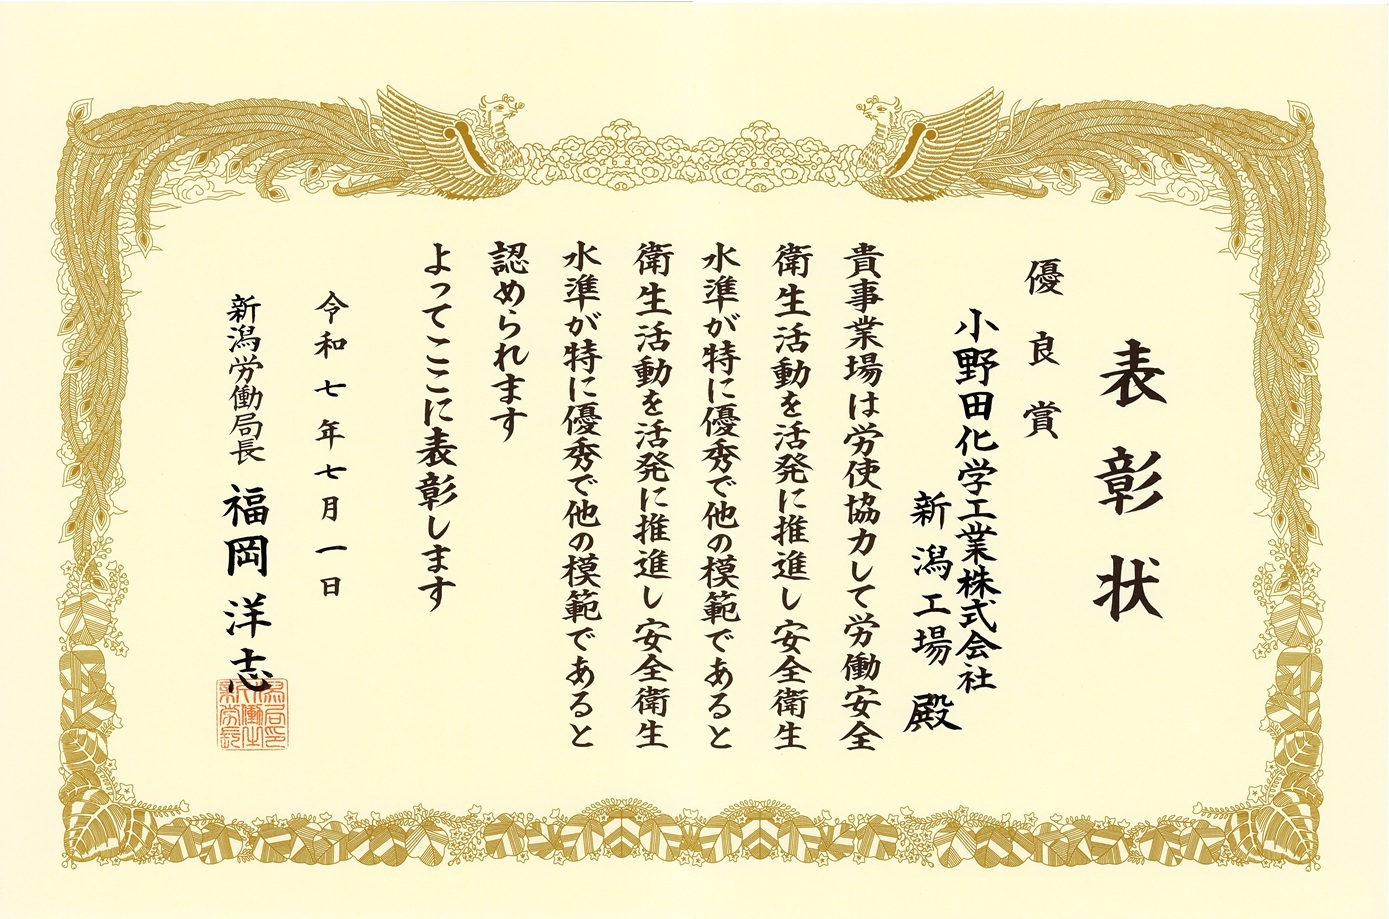 表彰状
優良賞
小野田化学工業株式会社
新潟工場 殿
貴事業場は労使協力して労働安全
衛生活動を活発に推進し安全衛生
水準が特に優秀で他の模範であると
衛生活動を活発に推進し安全衛生
水準が特に優秀で他の模範であると
認められます
よってここに表彰します
令和七年七月一日
新潟労働局長 福岡洋志